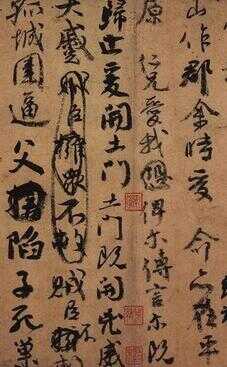 山作郡余時受命亦在平
原仁兄愛我俾尔傳言尔既
歸止爰開土門土門既開凶威
大蹙賊臣擁衆不救賊臣不
孤城圍逼父陷子死巢